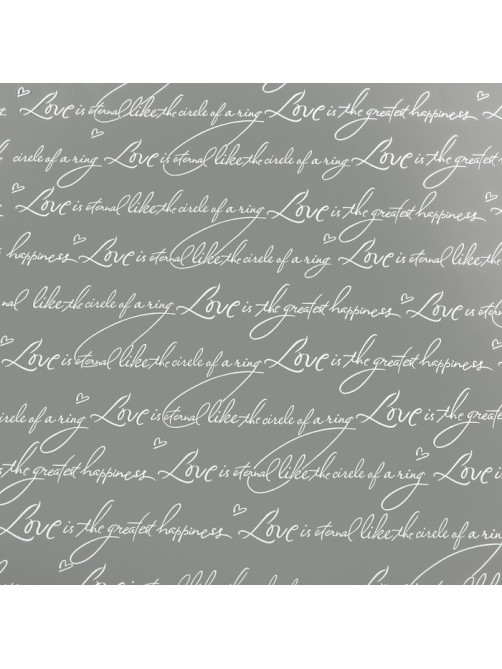 Love is eternal like the circle of a ring Love is the greatest happiness
circle of a ring Love is eternal like the circle of a ring Love is the greatest
Love is eternal like the circle of a ring Love is the greatest happiness
happiness Love is eternal like the circle of a ring Love is eternal like the
like the circle of a ring Love is the greatest happiness Love is
Love is eternal like the circle of a ring Love is the greatest happiness
circle of a ring Love is eternal like the circle of a ring Love is the
the greatest happiness Love is eternal like the circle of a ring Love is
Love is the greatest happiness Love is eternal like the circle of a